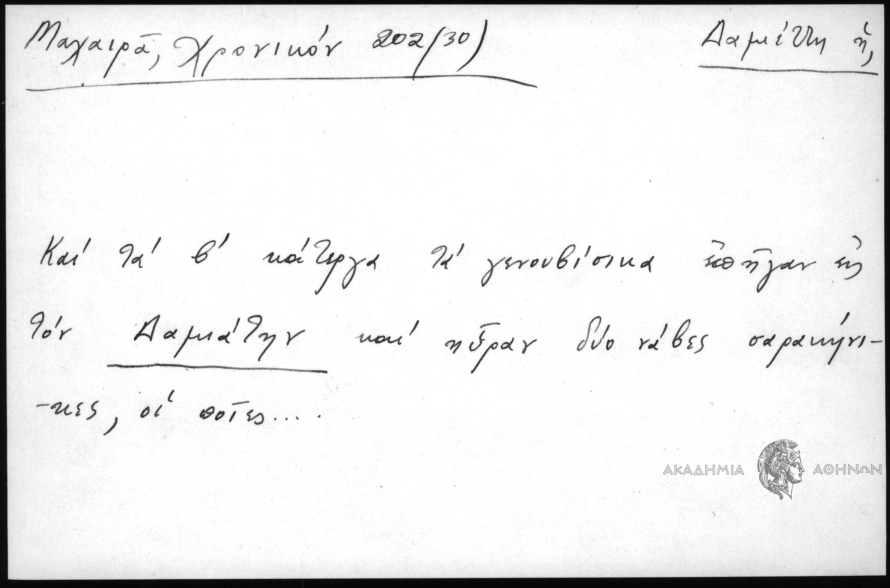 Μαχαιρᾶ, Χρονικόν 202/30)
Δαμιέττη ἡ,
Καί τά β' κάτεργα τά γενουβίσικα ἐπῆγαν εἰς
τόν Δαμιάτην καί ηὗραν δύο νάβες σαρακήνι-
-κες, οἱ ποῖες....
ΑΚΑΔΗΜΙΑ ΑΘΗΝΩΝ